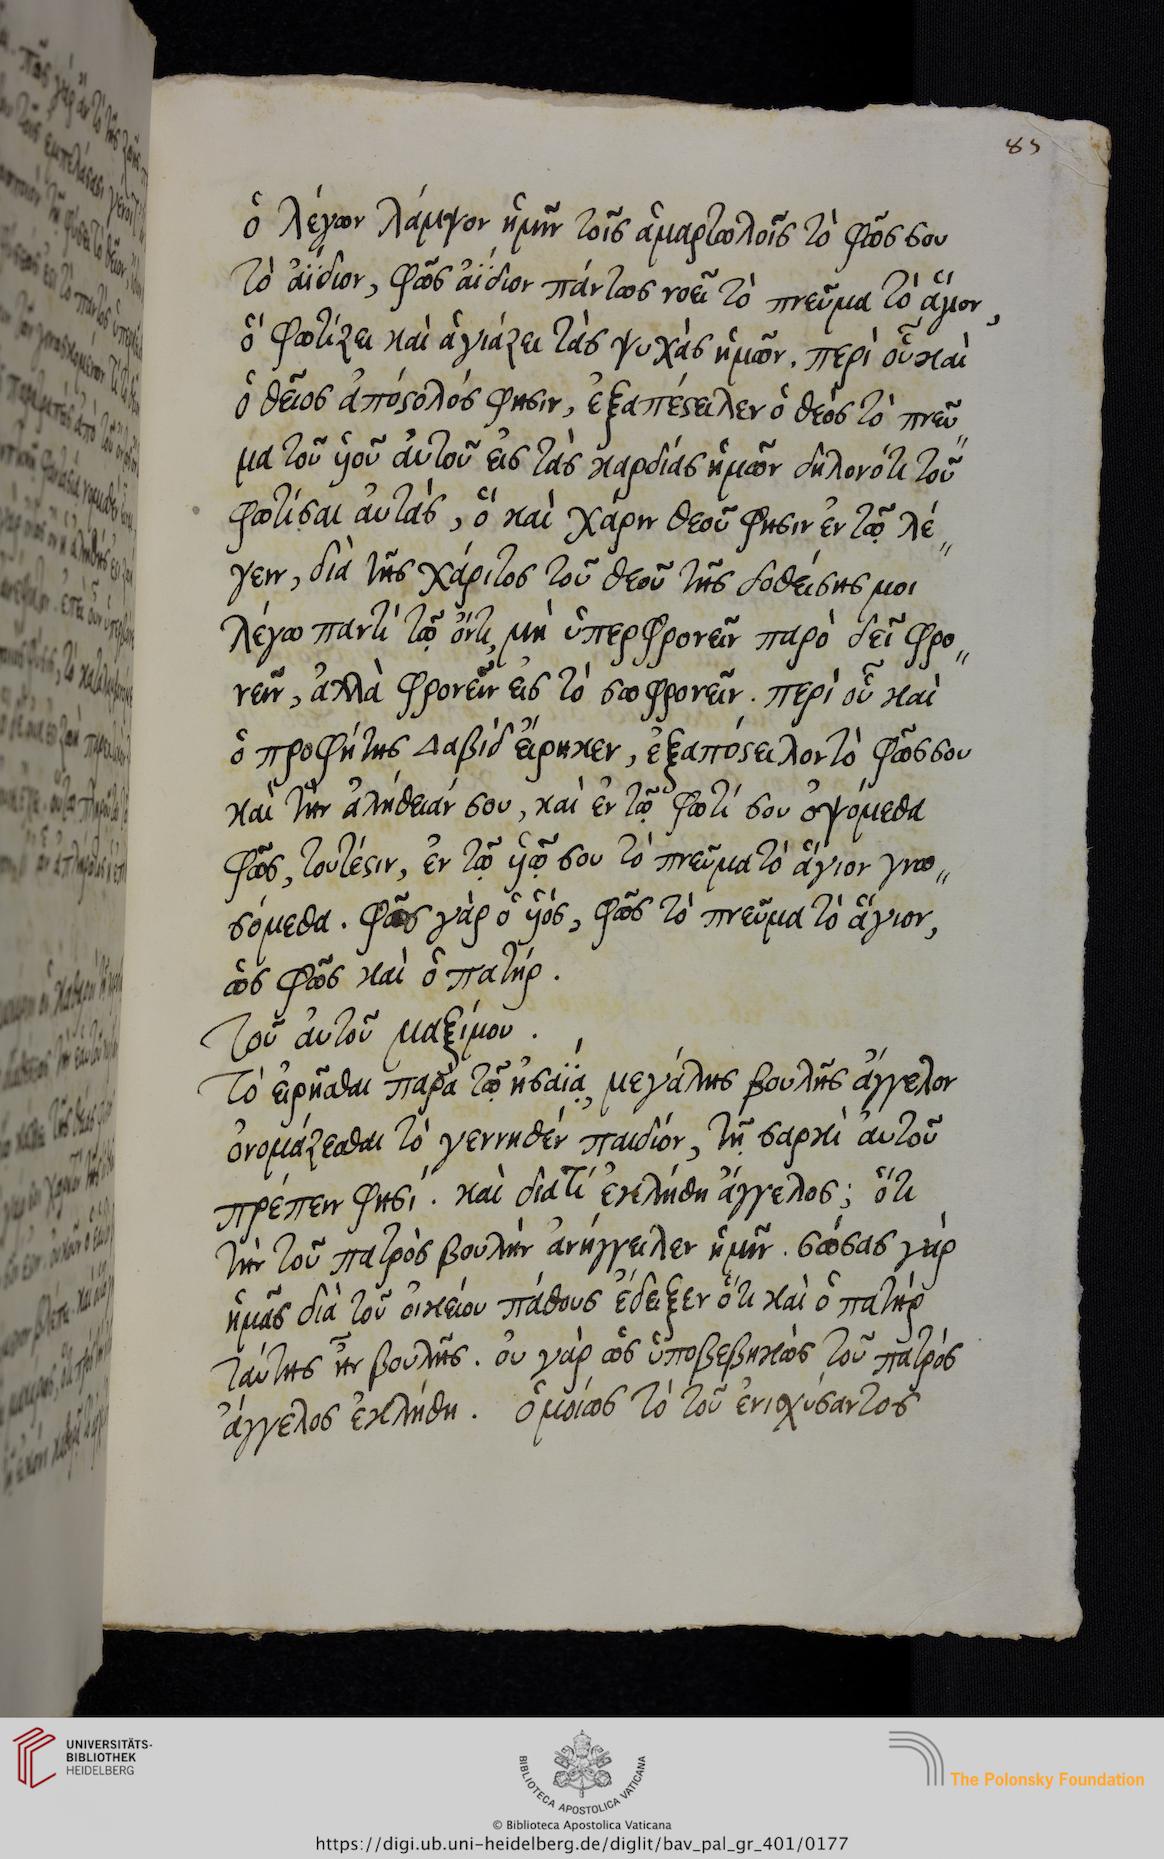 85
ὁ λέγων λάμψον ἡμῖν τοῖς ἁμαρτωλοῖς τὸ φῶς σου
τὸ ἀΐδιον, φῶς ἀΐδιον πάντως νοεῖ τὸ πνεῦμα τὸ ἅγιον,
ὃ φωτίζει καὶ ἁγιάζει τὰς ψυχὰς ἡμῶν. περὶ οὗ καὶ
ὁ θεῖος ἀπόστολός φησιν, ἐξαπέστειλεν ὁ θεὸς τὸ πνεῦ„
μα τοῦ ὑιοῦ ἀυτοῦ εἰς τὰς καρδίας ἡμῶν δηλονότι τοῦ
φωτίσαι ἀυτὰς, ὃ καὶ χάριν θεοῦ φησιν ἐν τῷ λέ„
γειν, διὰ τῆς χάριτος τοῦ θεοῦ τῆς δοθείσης μοι
λέγω παντὶ τῷ ὄντι, μὴ ὑπερφρονεῖν παρὸ δεῖ φρο„
νεῖν, ἀλλὰ φρονεῖν εἰς τὸ σωφρονεῖν. περὶ οὗ καὶ
ὁ προφήτης Δαβὶδ εἴρηκεν, ἐξαπόστειλον τὸ φῶς σου
καὶ τὴν ἀλήθειάν σου, καὶ ἐν τῷ φωτί σου ὀψόμεθα
φῶς, τουτέστιν, ἐν τῷ ὑιῷ σου τὸ πνεῦμα τὸ ἅγιον γνω„
σόμεθα. φῶς γὰρ ὁ ὑιὸς, φῶς τὸ πνεῦμα τὸ ἅγιον,
ὡς φῶς καὶ ὁ πατήρ.
τοῦ ἀυτοῦ μαξίμου.
τὸ εἰρῆσθαι παρὰ τῷ ἠσαΐᾳ, μεγάλης βουλῆς ἄγγελον
ὀνομάζεσθαι τὸ γεννηθὲν παιδίον, τῇ σαρκὶ ἀυτοῦ
πρέπειν φησί. καὶ διατί ἐκλήθη ἄγγελος; ὅτι
τὴν τοῦ πατρὸς βουλὴν ἀνήγγειλεν ἡμῖν. σώσας γὰρ
ἡμᾶς διὰ τοῦ οἰκείου πάθους ἔδειξεν ὅτι καὶ ὁ πατὴρ
ταύτης ἦν βουλῆς. οὐ γὰρ ὡς ὑποβεβηκὼς τοῦ πατρὸς
ἄγγελος ἐκλήθη. ὁμοίως τὸ τοῦ ἐνισχύσαντος
UNIVERSITÄTS-
BIBLIOTHEK
HEIDELBERG
BIBLIOTECA APOSTOLICA VATICANA
The Polonsky Foundation
© Biblioteca Apostolica Vaticana
https://digi.ub.uni-heidelberg.de/diglit/bav_pal_gr_401/0177